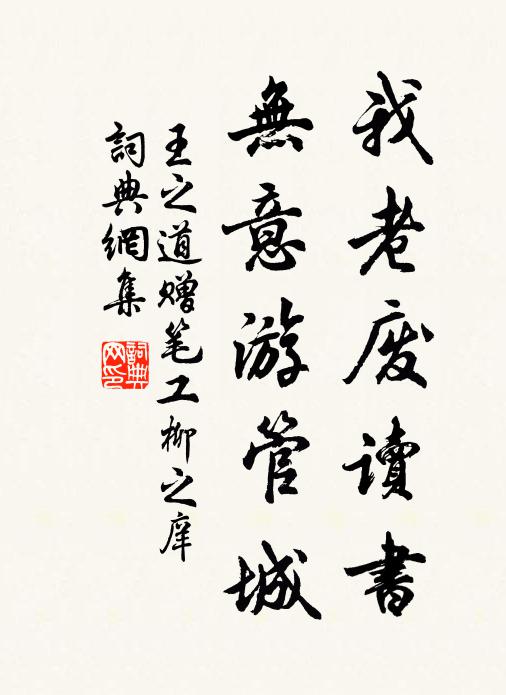 我老废讀書
無意游管城
王之道赠笔工柳之庠
詞典網集
詞典网印